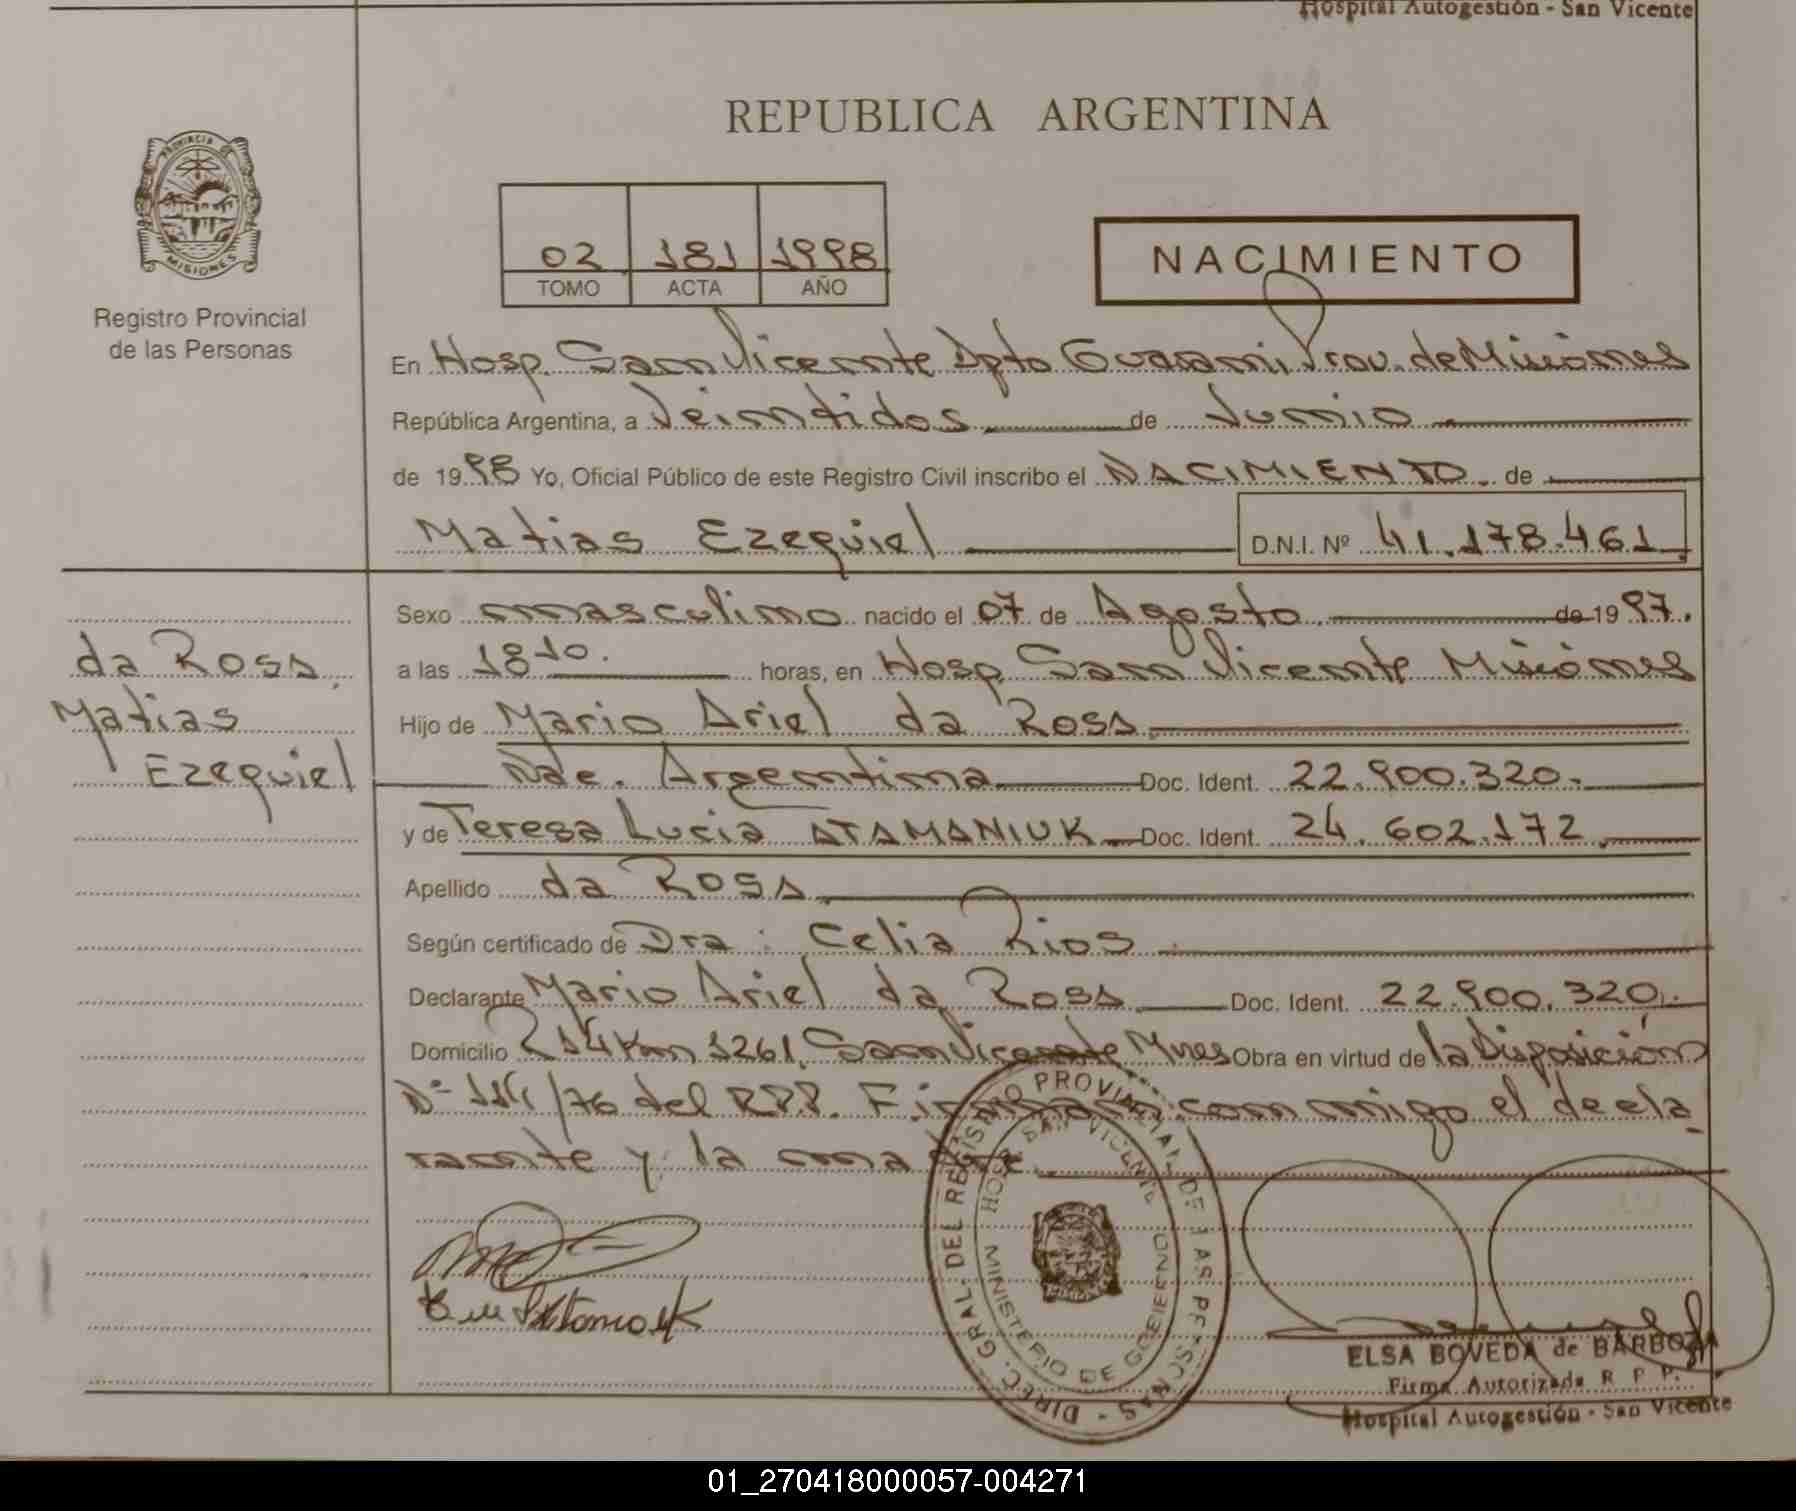 Hospital Autogestión - San Vicente
REPUBLICA ARGENTINA
PROVINCIA DE
MISIONES
Registro Provincial
de las Personas
02 181 1998
TOMO ACTA AÑO
NACIMIENTO
En Hosp. San Vicente Dpto Guaraní Prov. de Misiones
República Argentina, a Veintidos de Junio
de 1998 Yo, Oficial Público de este Registro Civil inscribo el NACIMIENTO. de
Matias Ezequiel D.N.I. Nº 41.178.461
Sexo masculino nacido el 07 de Agosto de 1997.
da Rosa,
Matias
Ezequiel
a las 18 10. horas, en Hosp. San Vicente Misiones
Hijo de Mario Ariel da Rosa
Nac. Argentina Doc. Ident. 22.900.320.
y de Teresa Lucia ATAMANIUK Doc. Ident. 24.602.172
Apellido da Rosa
Según certificado de Dra: Celia Rios
Declarante Mario Ariel da Rosa Doc. Ident. 22.900.320.
Domicilio R 14 Km 1261, San Vicente Mnes Obra en virtud de la Disposición
Nº 114/76 del RPP. Firmando conmigo el decla
rante y la madre
DIREC. GRAL. DEL REGISTRO PROVINCIAL DE LAS PERSONAS
HOSP. SAN VICENTE
MINISTERIO DE GOBIERNO
MISIONES
ELSA BOVEDA de BARBOZA
Firma Autorizada R P P.
Hospital Autogestión - San Vicente
01_270418000057-004271